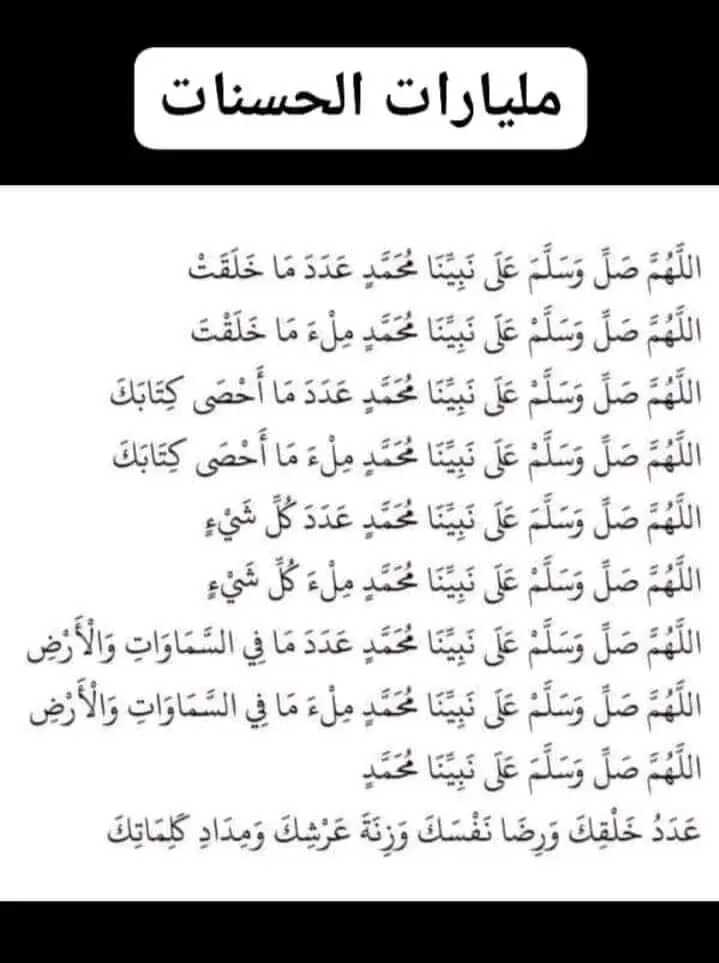 مليارات الحسنات
اللَّهُمَّ صَلِّ وَسَلَّمَ عَلَى نَبِيِّنَا مُحَمَّدٍ عَدَدَ مَا خَلَقَتْ
اللَّهُمَّ صَلِّ وَسَلَّمْ عَلَى نَبِيِّنَا مُحَمَّدٍ مِلْءَ مَا خَلَقْتَ
اللَّهُمَّ صَلِّ وَسَلَّمْ عَلَى نَبِيِّنَا مُحَمَّدٍ عَدَدَ مَا أَحْصَى كِتَابَكَ
اللَّهُمَّ صَلِّ وَسَلَّمْ عَلَى نَبِيِّنَا مُحَمَّدٍ مِلْءَ مَا أَحْصَى كِتَابَكَ
اللَّهُمَّ صَلِّ وَسَلَّمَ عَلَى نَبِيِّنَا مُحَمَّدٍ عَدَدَ كُلِّ شَيْءٍ
اللَّهُمَّ صَلِّ وَسَلَّمْ عَلَى نَبِيِّنَا مُحَمَّدٍ مِلْءَ كُلِّ شَيْءٍ
اللَّهُمَّ صَلِّ وَسَلَّمْ عَلَى نَبِيِّنَا مُحَمَّدٍ عَدَدَ مَا فِي السَّمَاوَاتِ وَالْأَرْضِ
اللَّهُمَّ صَلِّ وَسَلَّمْ عَلَى نَبِيِّنَا مُحَمَّدٍ مِلْءَ مَا فِي السَّمَاوَاتِ وَالْأَرْضِ
اللَّهُمَّ صَلِّ وَسَلَّمَ عَلَى نَبِيِّنَا مُحَمَّدٍ
عَدَدُ خَلْقِكَ وَرِضَا نَفْسَكَ وَزِنَةَ عَرْشِكَ وَمِدَادِ كَلِمَاتِكَ